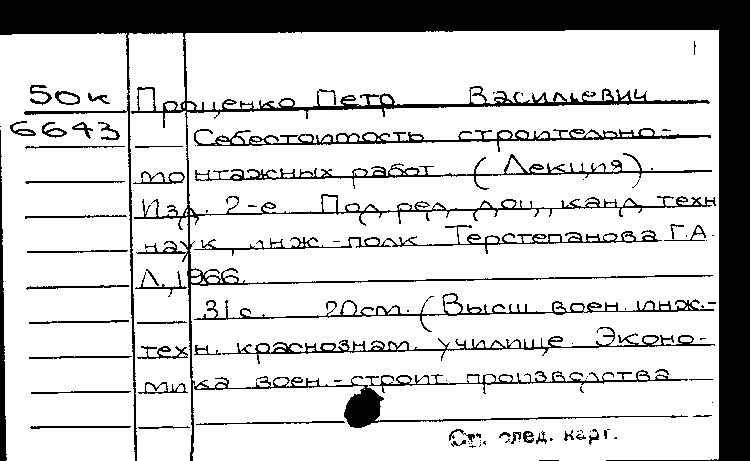 50к Проценко, Петр Васильевич
6643 Себестоимость строительно-
монтажных работ. (Лекция).
Изд. 2-е. Под ред. доц., канд. техн.
наук, инж.-полк. Терстепанова Г.А.
Л., 1966.
31 с. 20 см. (Высш. воен. инж.-
техн. краснознам. училище. Эконо-
мика воен.-строит. производства
См. след. карт.